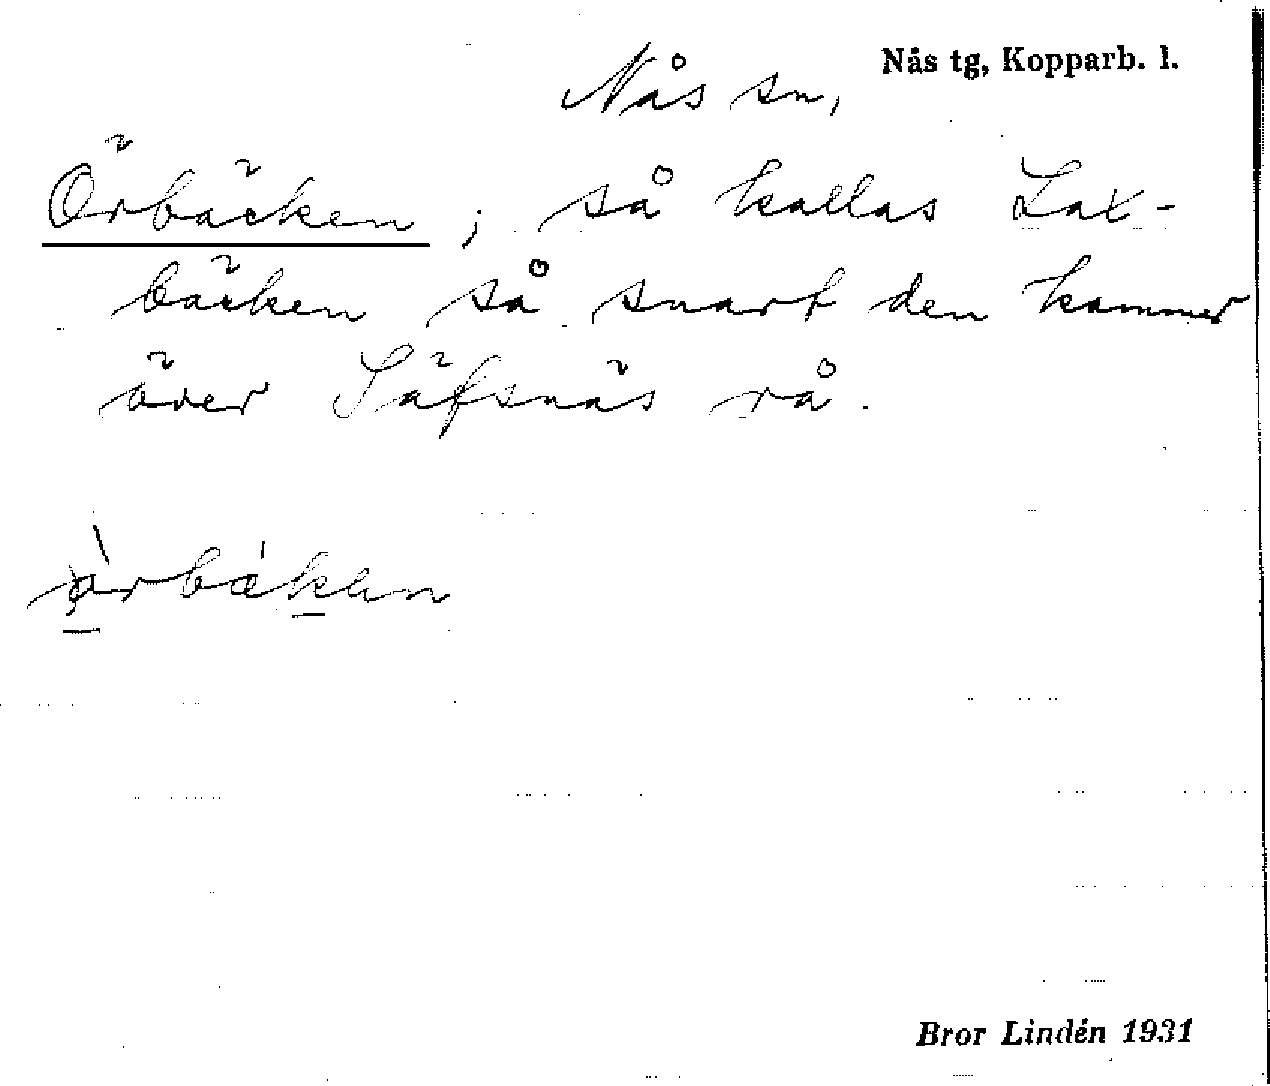 Nås tg, Kopparb. l.
Nås sn,
Örbäcken ; så kallas Lax-
bäcken så snart den kommer
över Säfsnäs rå.
Bror Lindén 1931